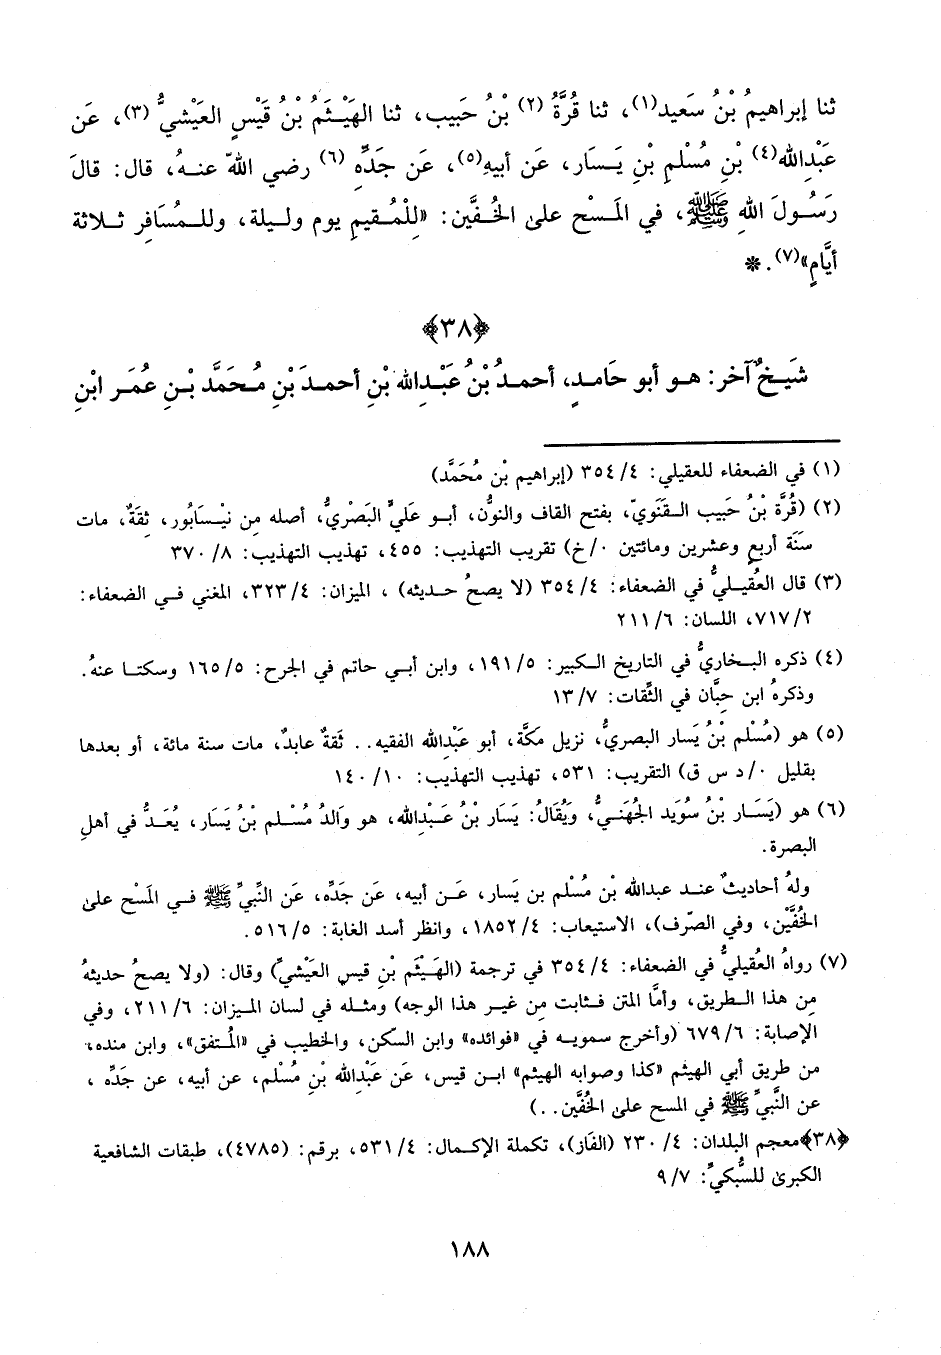 ثنا إبراهيمُ بْنُ سَعيد(١)، ثنا قُرَّةُ(٢) بْنُ حَبيب، ثنا الهَيْثَمُ بْنُ قَيْسٍ العَيْشيُّ(٣)، عَن
عَبْدِالله(٤) بْنِ مُسْلمِ بْنِ يَسَار، عَن أبيهِ(٥)، عَن جَدِّهِ(٦) رضي اللهّ عنهُ، قال: قالَ
رَسُولَ اللهِ ﷺ، في المَسْح على الخُفَّين: «لِلْمُقيمِ يوم وليلة، وللمُسَافِر ثلاثة
أيَّامٍ»(٧). *
﴿٣٨﴾
شَيخٌ آخر: هو أبو حَامدٍ، أحمدُ بْنُ عَبْدِالله بْنِ أحمدَ بْنِ مُحَمَّد بْنِ عُمَر ابْنِ
(١) في الضعفاء للعقيلي: ٤/ ٣٥٤ (إبراهيم بْن مُحَمَّد)
(٢) (قُرَّة بْنُ حَبيب القَنَويّ، بفتح القاف والنوُّن، أبو عَليِّ البَصْريُّ، أصله مِن نيْسَابُور، ثقَةٌ، مات
سَنَة أربعٍ وعشرين ومائتين ٠/خ) تقريب التهذيب: ٤٥٥، تهذيب التهذيب: ٨/ ٣٧٠
(٣) قال العُقيليُّ في الضعفاء: ٤/ ٣٥٤ (لا يصحُ حديثه) ، الميزان: ٤/ ٣٢٣، المغني في الضعفاء:
٢/ ٧١٧، اللسان: ٦/ ٢١١
(٤) ذكره البخاريُّ في التاريخ الكبير: ٥/ ١٩١، وابن أبي حاتم في الجرح: ٥/ ١٦٥ وسكتا عنهُ.
وذكرهُ ابن حِبَّان في الثِّقات: ٧/ ١٣
(٥) هو (مُسْلم بْنُ يَسار البصريُّ، نزيل مكَّة، أبو عَبْدِالله الفقيه.. ثقةٌ عابدٌ، مات سنة مائة، أو بعدها
بقليل ٠/ د س ق) التقريب: ٥٣١، تهذيب التهذيب: ١٠/ ١٤٠
(٦) هو (يَسَار بْنُ سُوَيد الجُهَنيُّ، وَيُقَالُ: يَسَار بْنُ عَبْدالله، هو وَالدُ مُسْلم بْنُ يَسَار، يُعَدُّ في أهلِ
البصرة.
ولهُ أحاديثٌ عند عبدالله بْن مُسْلم بن يَسار، عَن أبيه، عَن جَدِّه، عَن النَّبيِّ ﷺ في المَسْح على
الخُفَّيْن، وفي الصّرف)، الاستيعاب: ٤/ ١٨٥٢، وانظر أسد الغابة: ٥/ ٥١٦.
(٧) رواهُ العُقيليُّ في الضعفاء: ٤/ ٣٥٤ في ترجمة (الهَيْثَم بْنِ قيس العَيْشيِّ) وقال: (ولا يصحُ حديثهُ
مِن هذا الطريق، وأمَّا المتن فثابت مِن غير هذا الوجه) ومثله في لسان الميزان: ٦/ ٢١١، وفي
الإصابة: ٦/ ٦٧٩ (وأخرج سمويه في «فوائده» وابن السكن، والخطيب في «المُتفق»، وابن منده،
من طريق أبي الهيثم «كذا وصوابه الهيثم» ابن قيس، عَن عَبْدالله بْنِ مُسْلم، عن أبيه، عن جَدِّه ،
عن النَّبيِّ ﷺ في المسح على الخُفَّين..)
﴿٣٨﴾ معجم البلدان: ٤/ ٢٣٠ (الفَاز)، تكملة الإكمال: ٤/ ٥٣١، برقم: (٤٧٨٥)، طبقات الشافعية
الكبرىٰ للسُّبكيِّ: ٧/ ٩
١٨٨